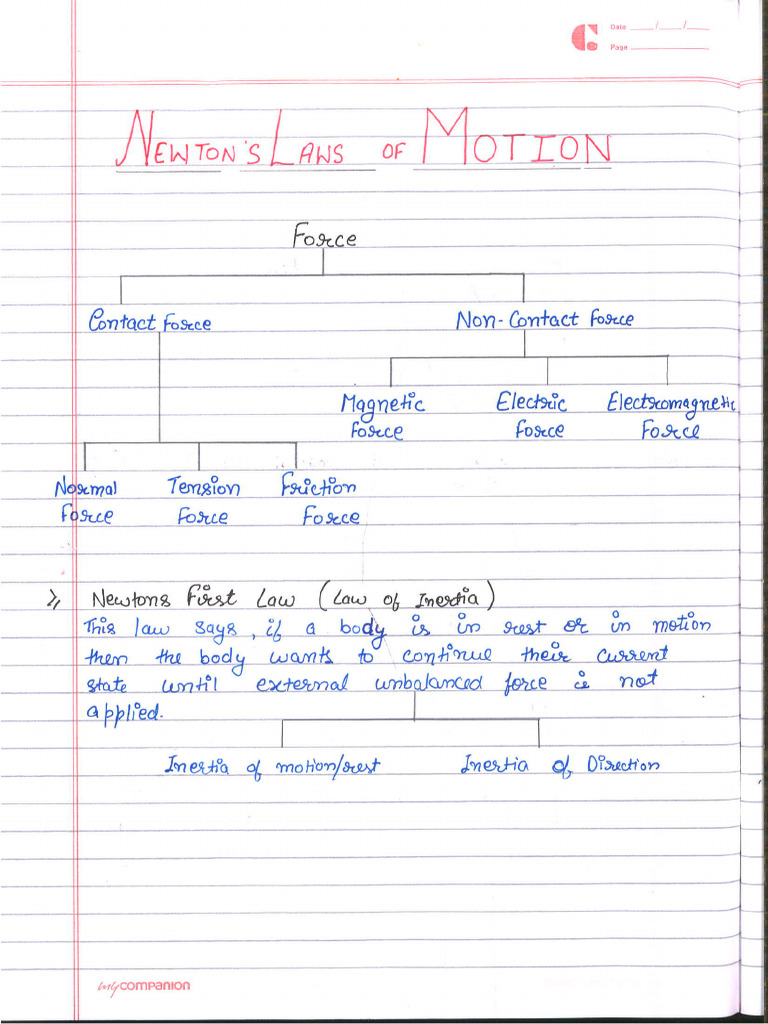 Date ___/___/___
Page
NEWTON'S LAWS OF MOTION
Force
Contact Force Non-Contact Force
Magnetic Electric Electromagnetic
Force Force Force
Normal Tension Friction
Force Force Force
Newtons First Law (Law of Inertia)
This law says, if a body is in rest or in motion
then the body wants to continue their current
state until external unbalanced force is not
applied.
Inertia of motion/rest Inertia of Direction
mycompanion